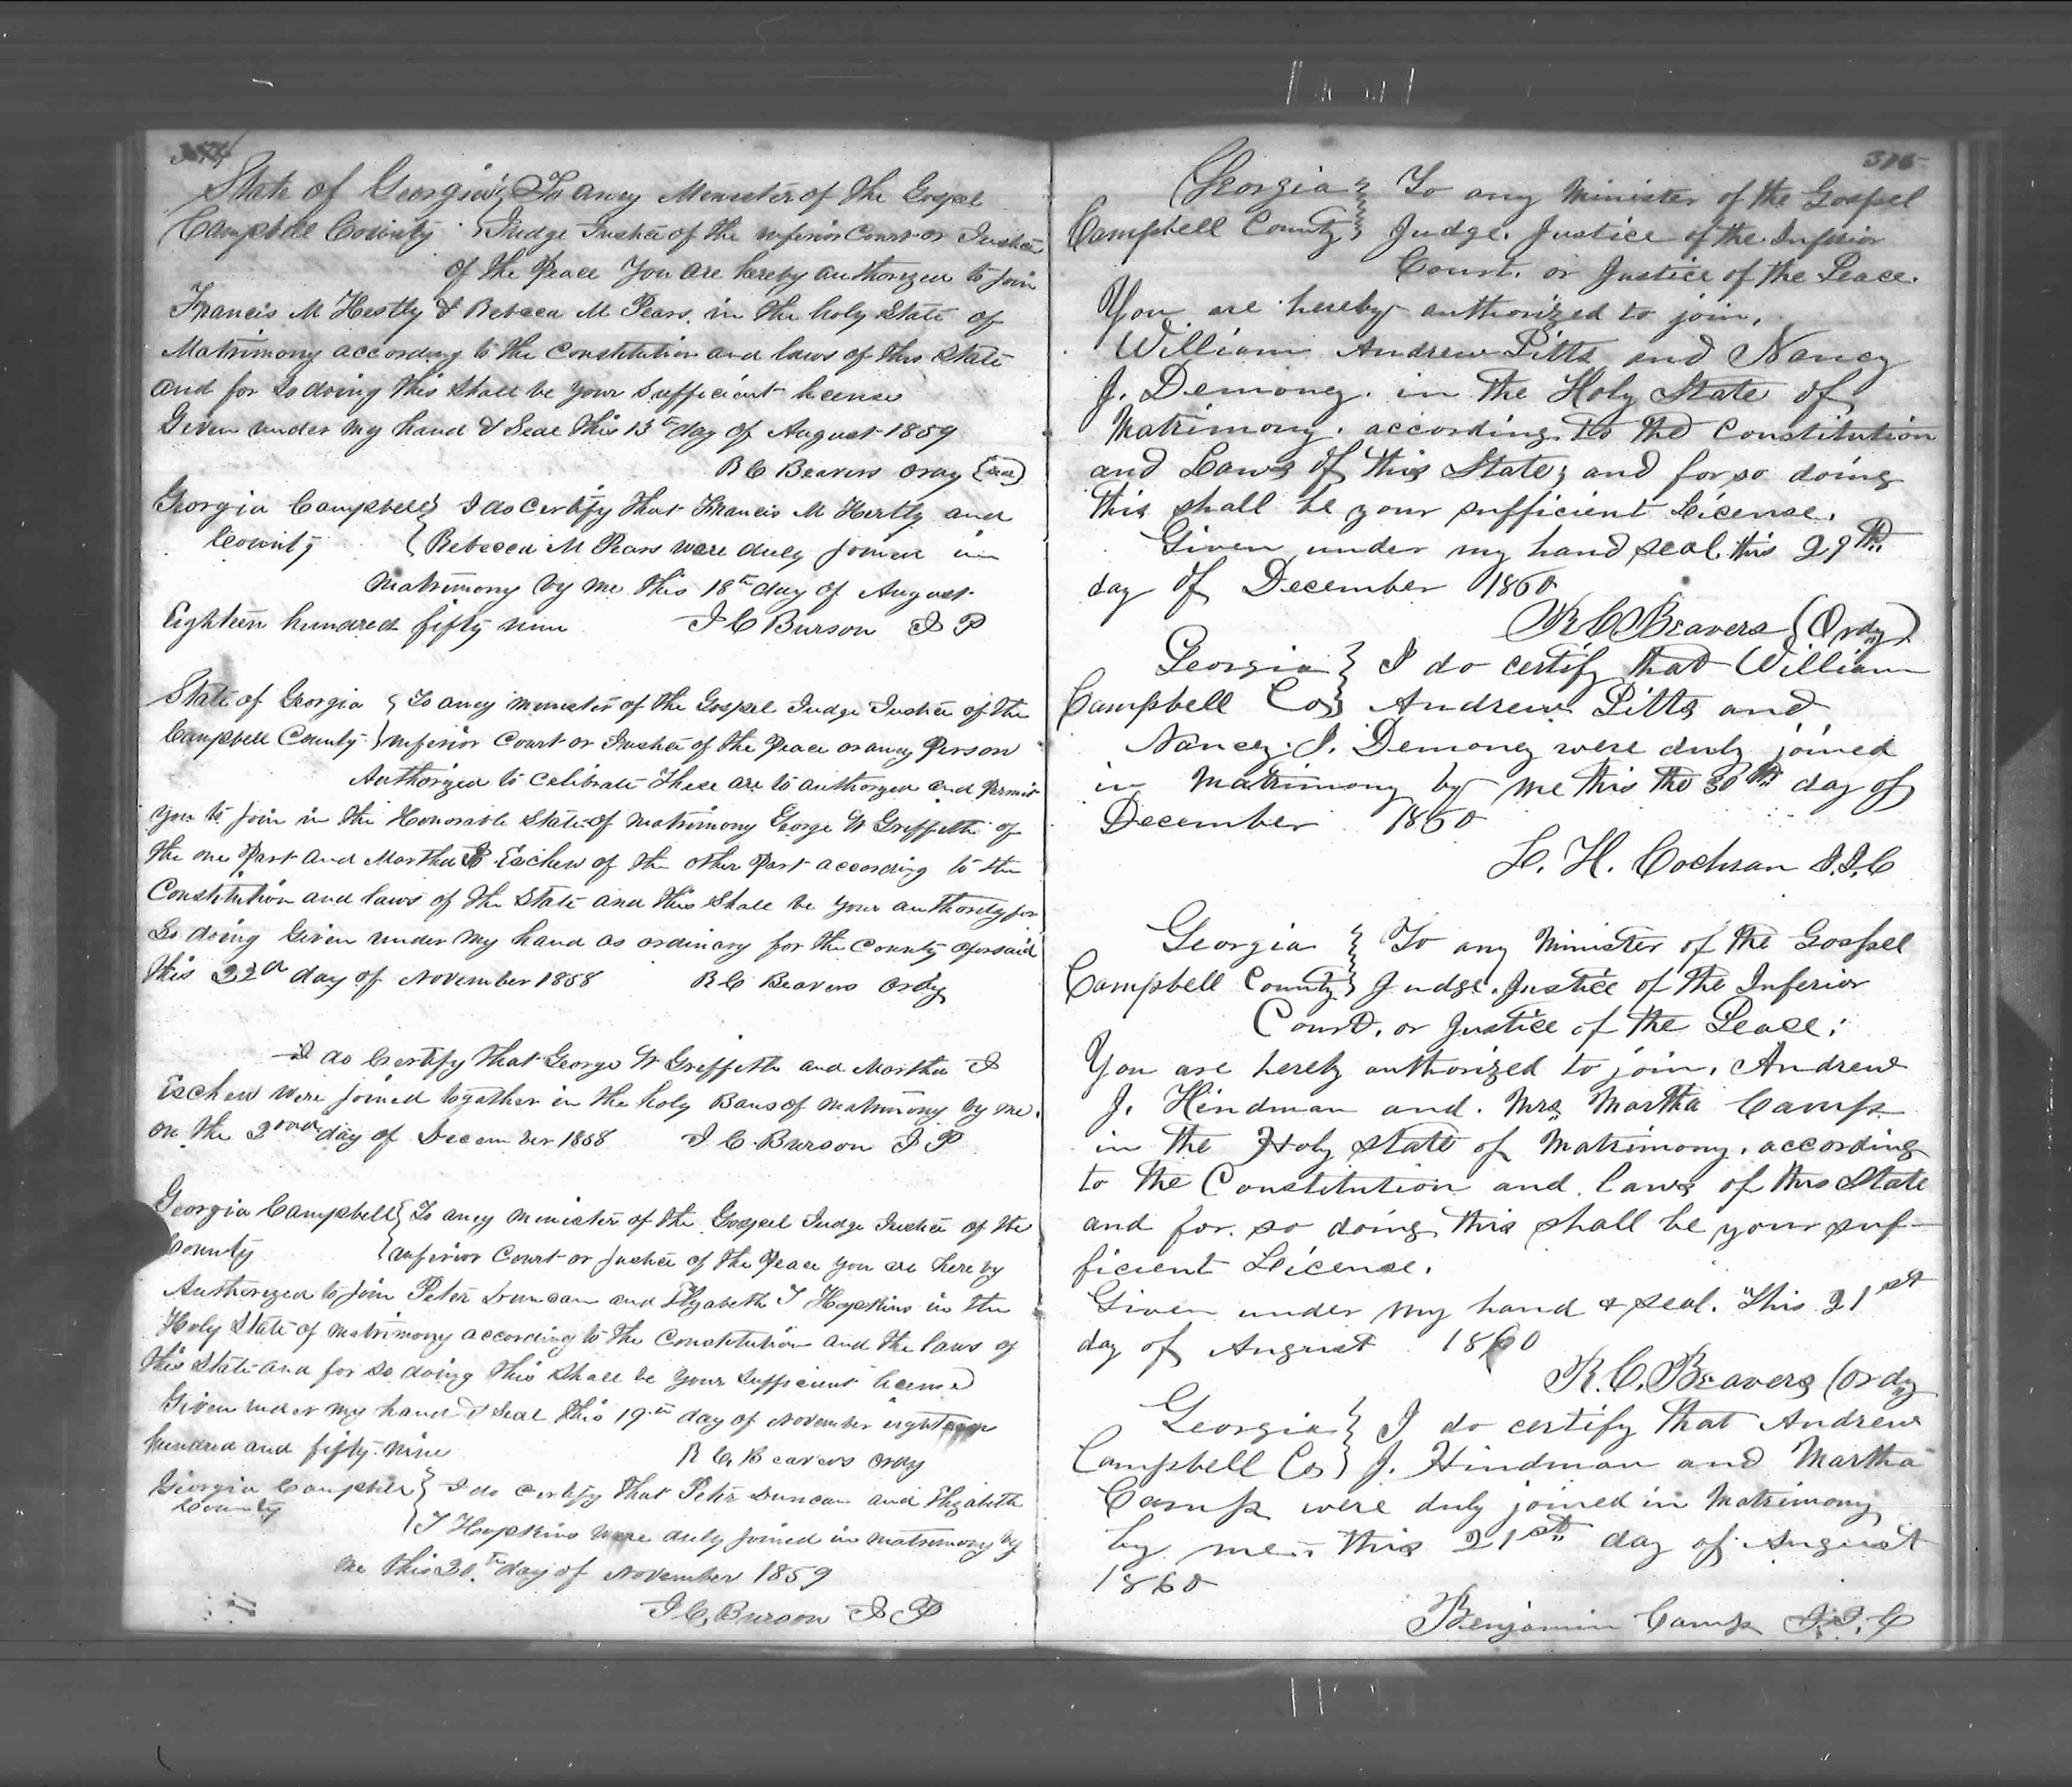 374
State of Georgia } To aney Menester of the Gospel
Campbell County } Judge Justice of the inferior Court or Justice
of the Peace You are hereby authorized to join
Francis M Hestly & Rebecca M Pears in the holy State of
Matrimony according to the Constitution and laws of this State
and for so doing this Shall be your Sufficient license
Given under my hand & Seal this 13th day of August 1859
R C Beavers ordy (seal)
Georgia Campbell } I do certify that Francis M Hertly and
County { Rebecca M Pears were duly joined in
matrimony by me this 18th day of August
Eighteen hundred fifty nine J C Burson J P
State of Georgia { To aney minester of the Gospel Judge Justice of the
Campbell County } inferior Court or Justice of the Peace or aney Person
Authorized to celibrate These are to authorize and Permit
you to join in the Honorable State of matrimony George W Griffeth of
the one Part and Martha J Eschew of the other Part according to the
Constitution and laws of the State and this Shall be your authority for
So doing Given under my hand as ordinary for the County aforsaid
this 22d day of November 1858 R C Beavers ordy
I do Certify that George W Griffeth and Martha J
Eschew were joined togather in the holy Bans of matrimony by me
on the 2nd day of December 1858 J C Burson J P
Georgia Campbell { To aney minester of the Gospel Judge Justice of the
County { inferior Court or Justice of the Peace you are hereby
Authorized to join Peter Duncan and Elizabeth T Hopkins in the
Holy State of matrimony according to the Constitution and the laws of
this State and for so doing this Shall be your Sufficient license
Given under my hand & Seal this 19th day of November eighteen
hundred and fifty nine R C. Beavers ordy
Georgia Campbell } I do certify that Peter Duncan and Elizabeth
County
} T Hopkins were duly joined in matrimony by
me this 20th day of November 1859
J C, Burson J P
375
Georgia } To any Minister of the Gospel
Campbell County } Judge. Justice of the Inferior
Court. or Justice of the Peace.
You are hereby authorized to join,
William Andrew Pitts and Nancy
J. Demoney. in the Holy State of
Matrimony. according to the Constitution
and Laws of this State; and for so doing
this shall be your sufficient License.
Given under my hand seal this 29th
day of December 1860
R C Beavers (Ordy)
Georgia } I do certify that William
Campbell Co } Andrew Pitts and
Nancy J. Demoney were duly joined
in Matrimony by me this the 30th day of
December 1860
L. H. Cochran J.I.C
Georgia } To any Minister of the Gospel
Campbell County } Judge. Justice of the Inferior
Court. or Justice of the Peace:
You are hereby authorized to join. Andrew
J. Hindman and. Mrs Martha Camp
in the Holy State of Matrimony. according
to the Constitution and laws of this State
and for so doing this shall be your suf-
ficient License.
Given under my hand & seal. This 21st
day of August 1860
R. C. Beavers (Ordy
Georgia } I do certify that Andrew
Campbell Co } J. Hindman and Martha
Camp were duly joined in Matrimony
by me this 21st day of August
1860
Benjamin Camp J.I.C